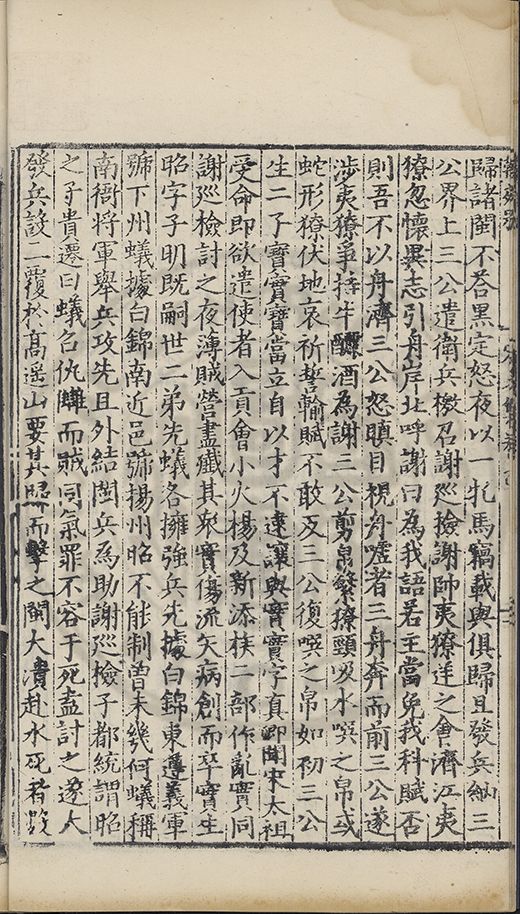 歸諸閩不荅黑定怒夜以一牝馬竊載與俱歸且發兵納三
公界上三公遣衛兵檄召謝巡檢謝帥夷獠逆之會濟江夷
獠忽懷異志引舟岸北呼謝曰為我語若主當免我科賦否
則吾不以舟濟三公怒瞋目視舟噓者三舟奔而前三公遂
涉夷獠爭持牛釃酒為謝三公剪帛繫獠頸吸水噀之帛或
蛇形獠伏地哀祈誓輸賦不敢反三公復噀之帛如初三公
生二子寶實寶當立自以才不逮讓與實實字真卿聞宋太祖
受命即欲遣使者入貢會小火楊及新添族二部作亂實同
謝巡檢討之夜薄賊營盡殲其衆實傷流矢病創而卒實生
昭字子明既嗣世二弟先蟻各擁強兵先據白錦東遵義軍
號下州蟻據白錦南近邑號揚州昭不能制曾未幾何蟻稱
南衙將軍舉兵攻先且外結閩兵為助謝巡檢子都統謂昭
之子貴遷曰蟻召仇讎而賊同氣罪不容于死盍討之遂大
發兵設二覆於高遥山要其歸而擊之閩大潰赴水死者數